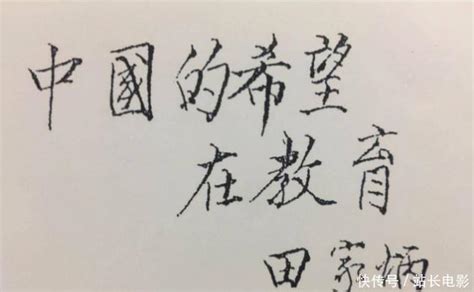 中國的希望
在教育
田家炳
快传号/站长电影